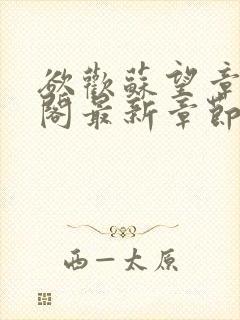 欲歡蘇望章
閣最新章節
西一太原